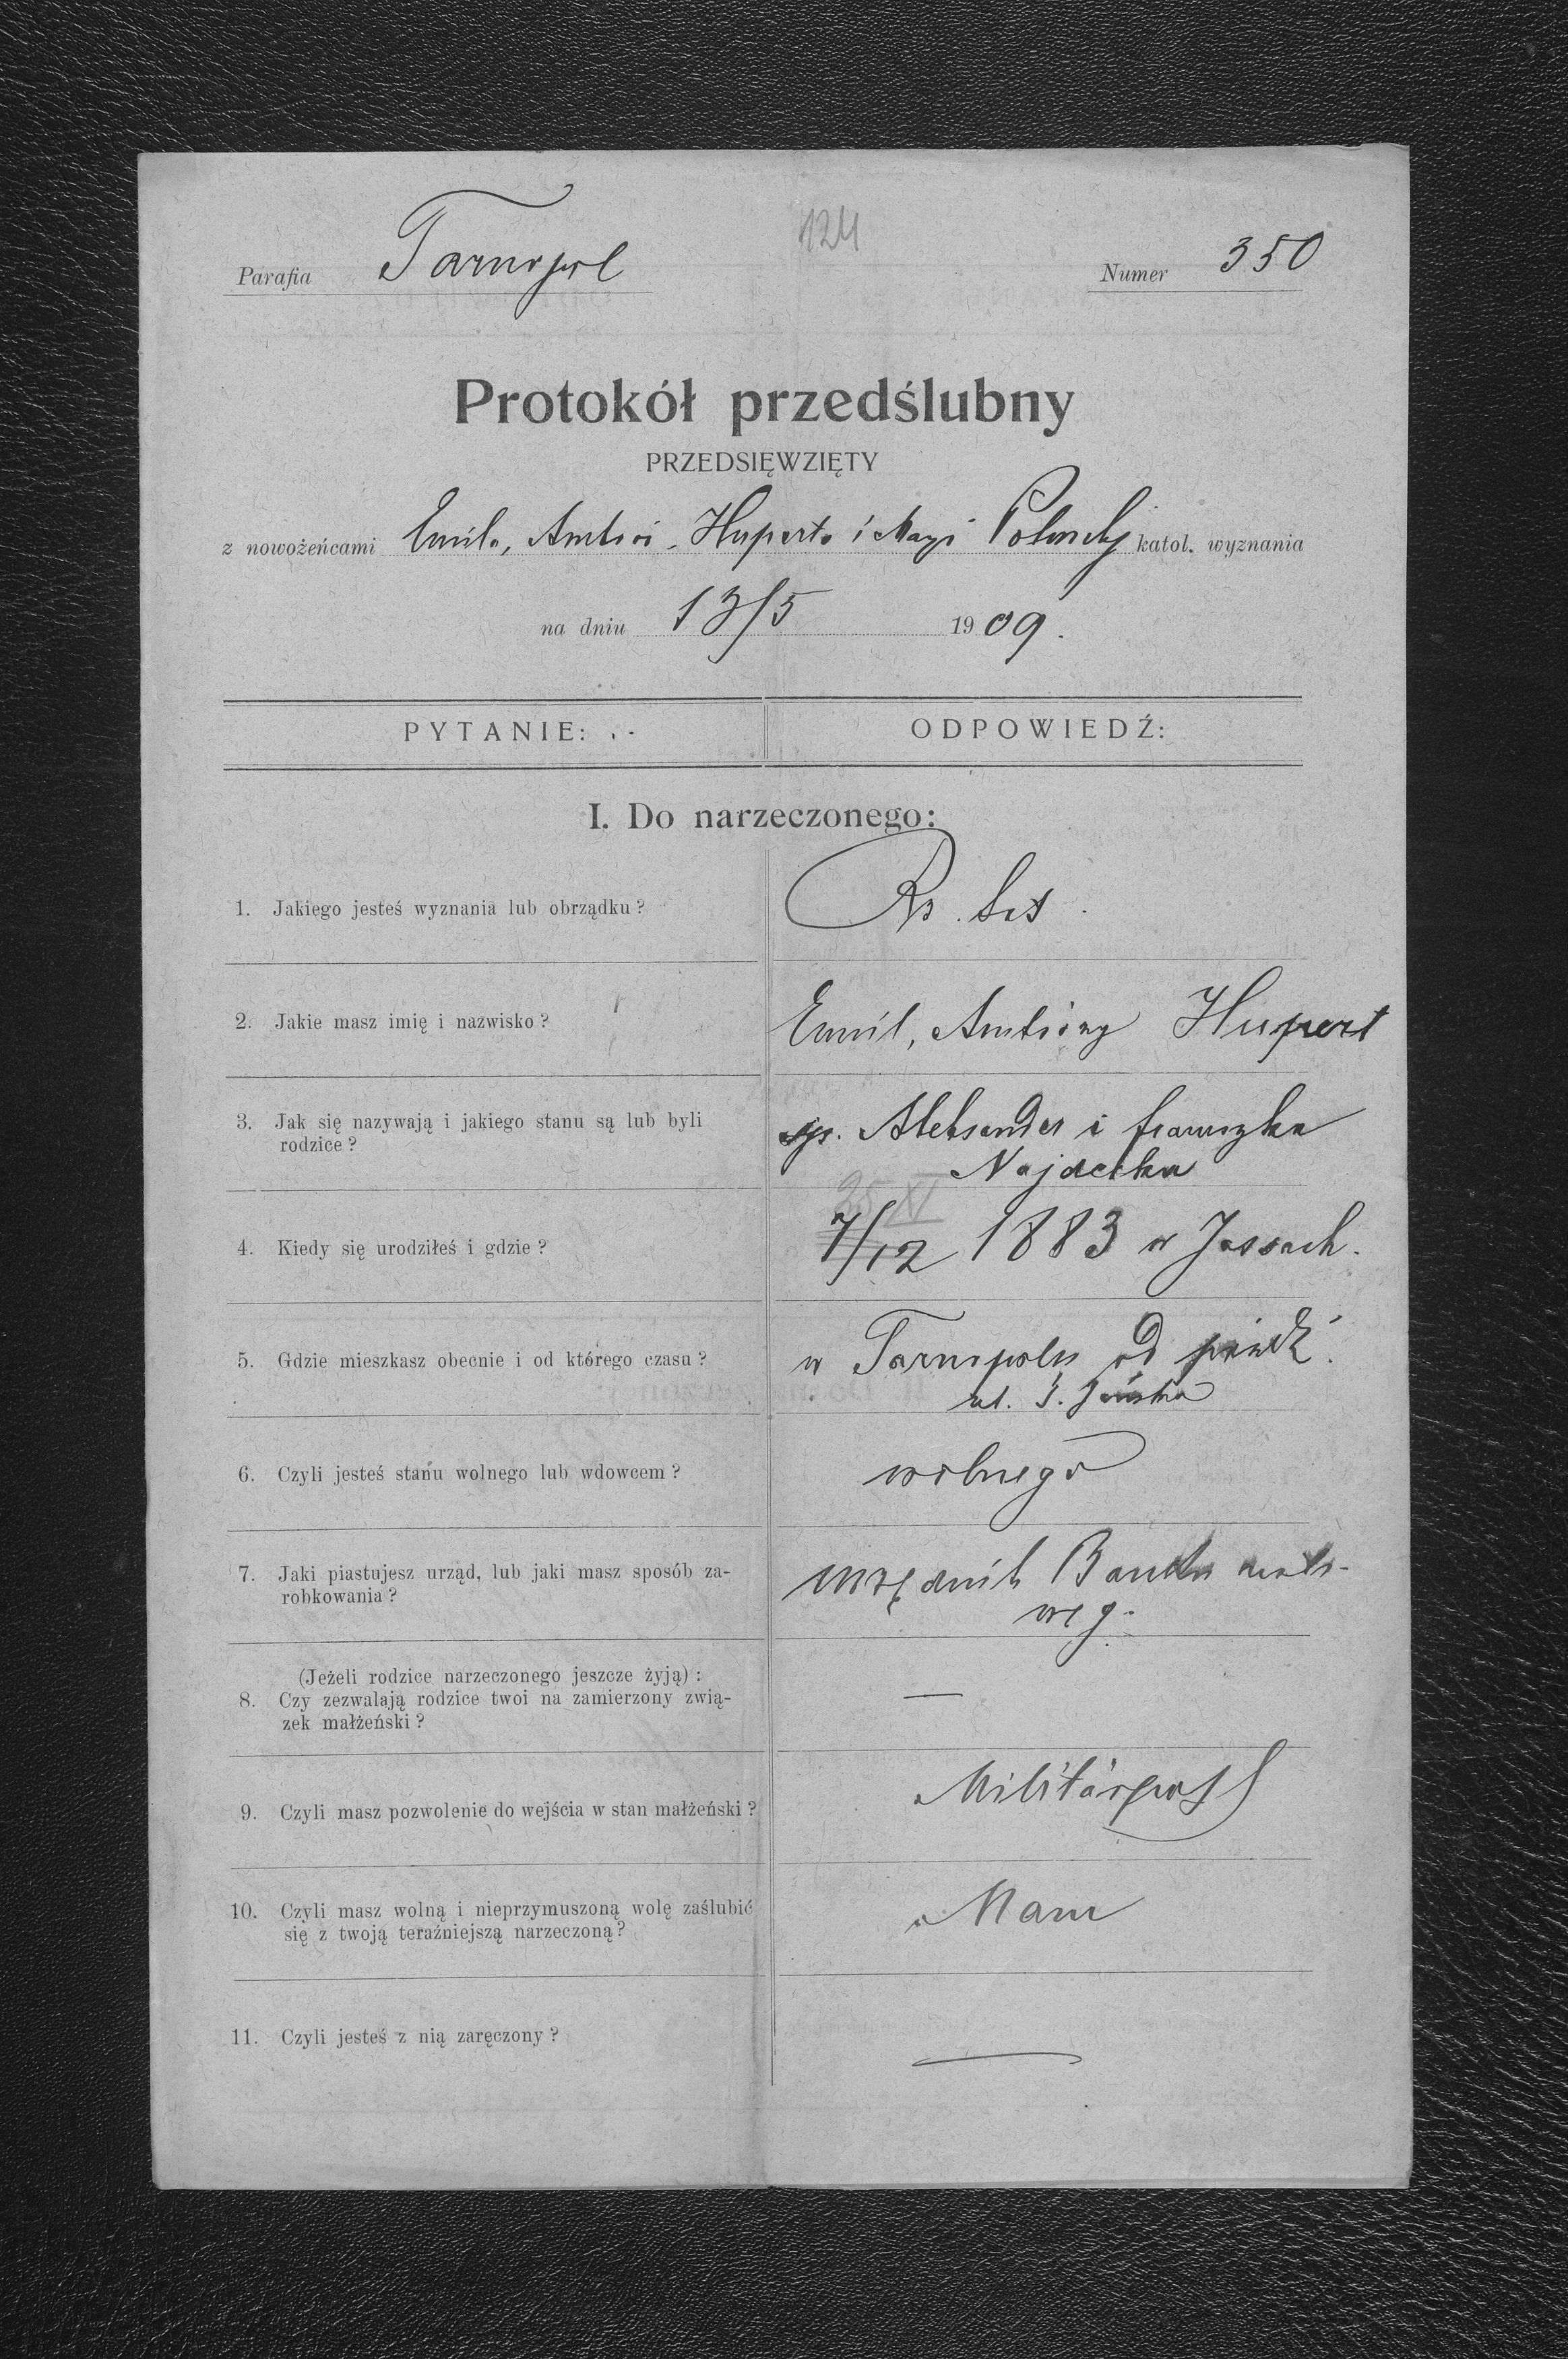 Parafia Tarnopol
124
Numer 350
Protokół przedślubny
PRZEDSIĘWZIĘTY
z nowożeńcami Emil, Hupert i katol. wyznania
na dniu 13/5 1909.
PYTANIE:
ODPOWIEDŹ:
I. Do narzeczonego:
1. Jakiego jesteś wyznania lub obrządku?
2. Jakie masz imię i nazwisko?
Emil, Antoni Hupert
3. Jak się nazywają i jakiego stanu są lub byli
rodzice?
Aleksander i Franciszka
25 XI
4. Kiedy się urodziłeś i gdzie?
7/12 1883 w Jassach.
5. Gdzie mieszkasz obecnie i od którego czasu?
w Tarnopolu od
ul.
6. Czyli jesteś stanu wolnego lub wdowcem?
wolnego
7. Jaki piastujesz urząd, lub jaki masz sposób za-
robkowania?
urzędnik Banku
(Jeżeli rodzice narzeczonego jeszcze żyją):
8. Czy zezwalają rodzice twoi na zamierzony zwią-
zek małżeński?
—
9. Czyli masz pozwolenie do wejścia w stan małżeński?
Militärpass
10. Czyli masz wolną i nieprzymuszoną wolę zaślubić
się z twoją teraźniejszą narzeczoną?
Mam
11. Czyli jesteś z nią zaręczony?
—